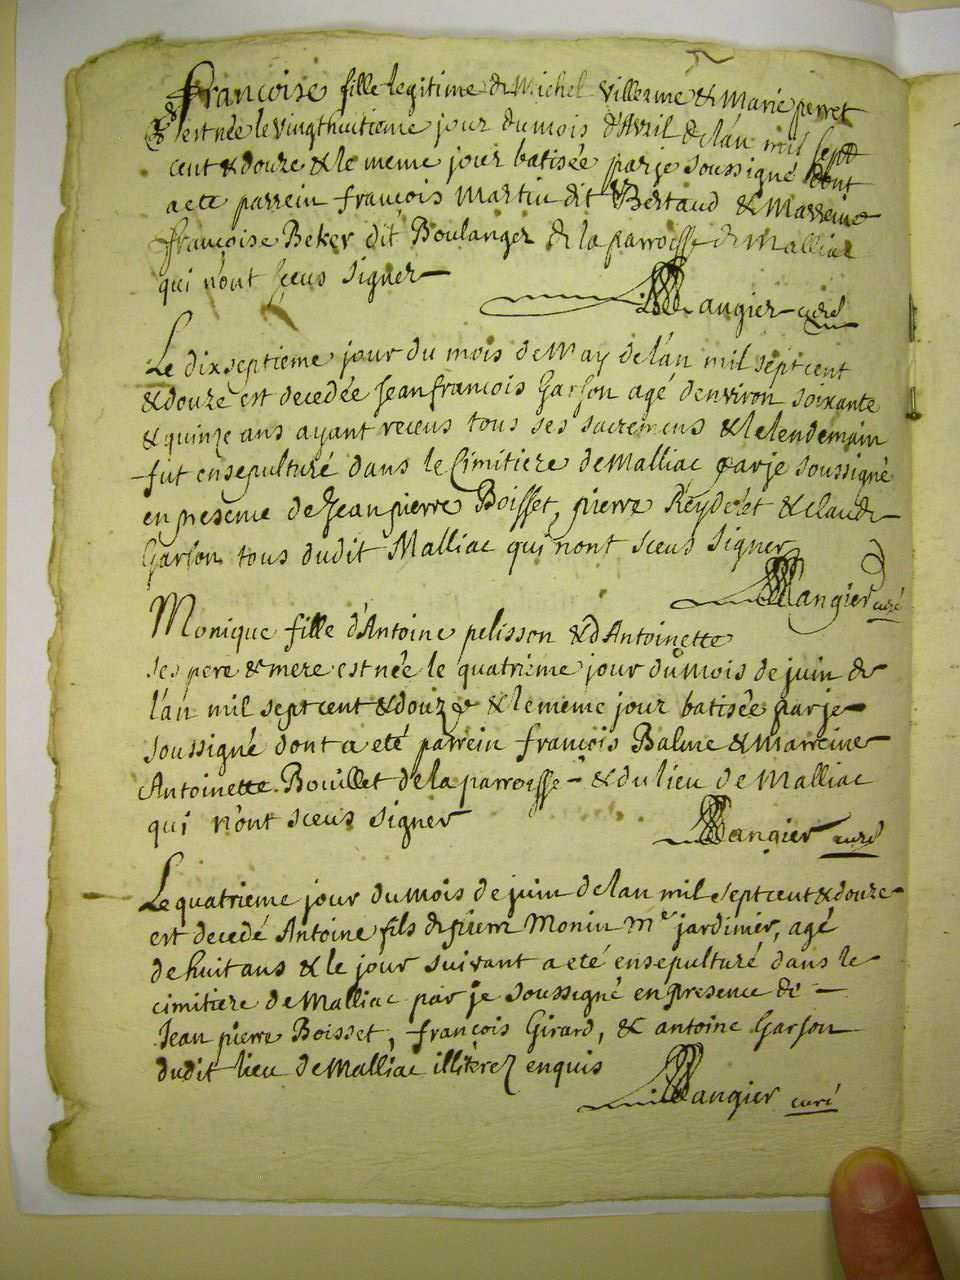 françoise fille legitime de Michel villerme & de Marie perret
est née le vingthuitieme jour du mois d'Avril de l'an mil sept
cent & douze & le meme jour batisée par je soussigné dont
a ete parrein françois Martin dit Bertaud & Marreine
françoise Beker dit Boulanger de la parroisse de Malliac
qui n'ont sceus signer
Mangier curé
Le dixseptieme jour du mois de May de l'an mil sept cent
& douze est decedée Jean françois Garson agé d'environ soixante
& quinze ans ayant receus tous ses sacremens & le lendemain
fut ensepulturé dans le Cimitiere de Malliac par je soussigné
en presence de Jean pierre Boisset, pierre Reydelet & claude
Garson tous dudit Malliac qui n'ont sceus signer
Mangier curé
Monique fille d'Antoine pelisson & d'Antoinette
ses pere & mere est née le quatrieme jour du mois de juin de
l'an mil sept cent & douze & le meme jour batisée par je
soussigné dont a eté parrein françois Balme & Marreine
Antoinette Bouillet de la parroisse & du lieu de Malliac
qui n'ont sceus signer
Mangier curé
Le quatrieme jour du mois de juin de lan mil sept cent & douze
est decedé Antoine fils de pierre Monin me jardinier, agé
de huit ans & le jour suivant a eté ensepulturé dans le
cimitiere de Malliac par je soussigné en presence de
Jean pierre Boisset, françois Girard, & antoine Garson
dudit lieu de Malliac illiterez enquis
Mangier curé